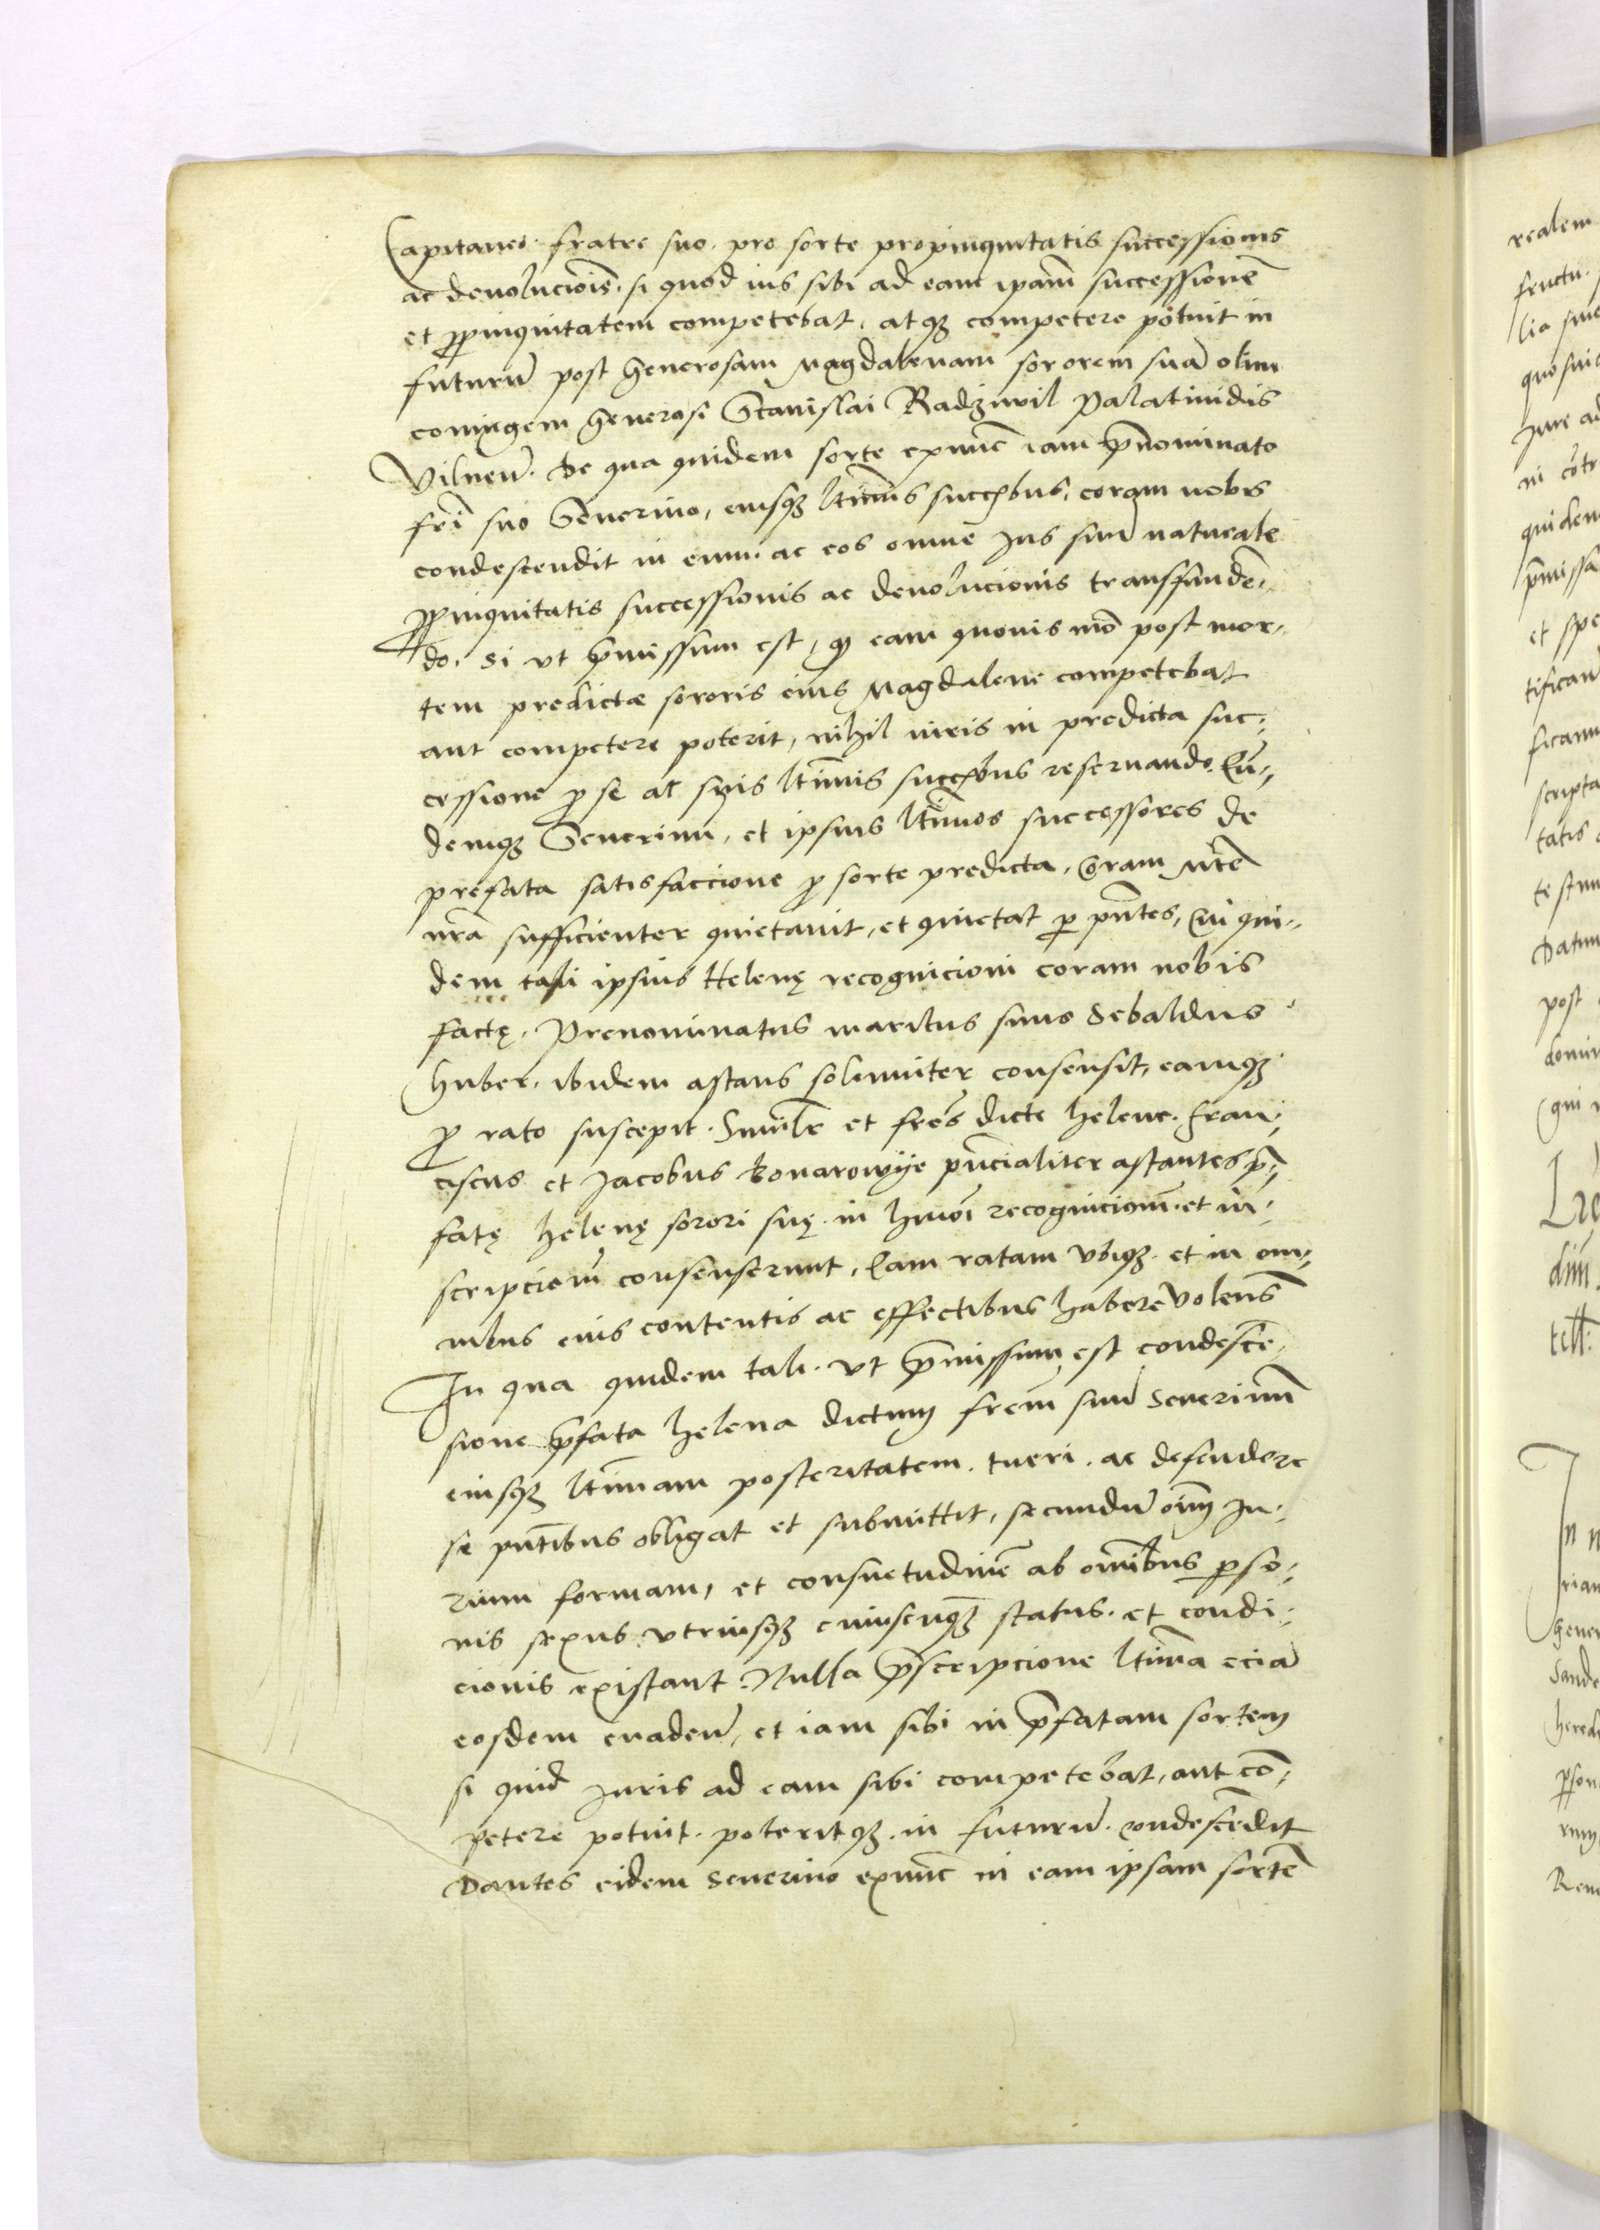 Capitaneo. fratre suo. pro sorte propinquitatis successionis
ac deuolucioīs. si quod ius sibi ad eam ipām successionē
et ꝓpinquitatem competebat, atqꝫ competere potuit in
futurū post Generosam Magdalenam sororem suā olim
coniugem generosi Stanislai Radziwil Palatinidis
Vilneñ. De qua quidem sorte exnunc iam p̄nominato
frī suo Seuerino, eiusqꝫ ltīmis succʳbus, coram nobis
condescendit in eum. ac eos omne Jus suū naturale
ꝓpinquitatis successionis ac deuolucionis transfunden-
do. Si vt p̄missum est, qꝫ eam quouis mō post mor-
tem predictæ sororis eius Magdalene competebat
aut competere poterit, nihil iuris in predicta suc-
cessione ꝓ se ac suis ltīmis succʳbus reseruando. Eū-
demqꝫ Seuerinū, et ipsius ltīmos successores de
prefata satisfaccione ꝓ sorte predicta, Coram Mte
nrā sufficienter quietauit, et quietat ꝑ pn̄tes, Cui qui-
dem tali ipsius Helenę recognicioni coram nobis
factę. Prenominatus maritus suus Sebaldus
huber, ibidem astans solemniter consensit, eamqꝫ
ꝓ rato suscepit. Similr et frēs dicte helene. Fran-
ciscus et Jacobus Bonarowye pn̄cialiter astantes p̄-
fatę helenę sorori suę. in hmōi recognicioem̄. et in-
scripcioem̄ consenserunt, Eam ratam vbiqꝫ. et in om-
nibus eius contentis ac effectibus habere volens
In qua quidem tali. vt p̄missum est condescē-
sione p̄fata helena dictum frēm suū Seuerinū
eiusqꝫ ltīmam posteritatem. tueri. ac defendere
se pn̄tibus obligat et submittit, secundū oīm Ju-
rium formam, et consuetudinē ab omībus ꝑso-
nis sexus vtriusqꝫ cuiuscunqꝫ status. et condi-
cionis existant. Nulla p̄scripcione ltīma eciā
eosdem euadeñ, et iam sibi in p̄fatam sortem
si quid Juris ad eam sibi competebat, aut cō-
petere potuit. poteritqꝫ. in futurū. condescēdit
Dantes eidem Seuerino exnunc in eam ipsam sortē